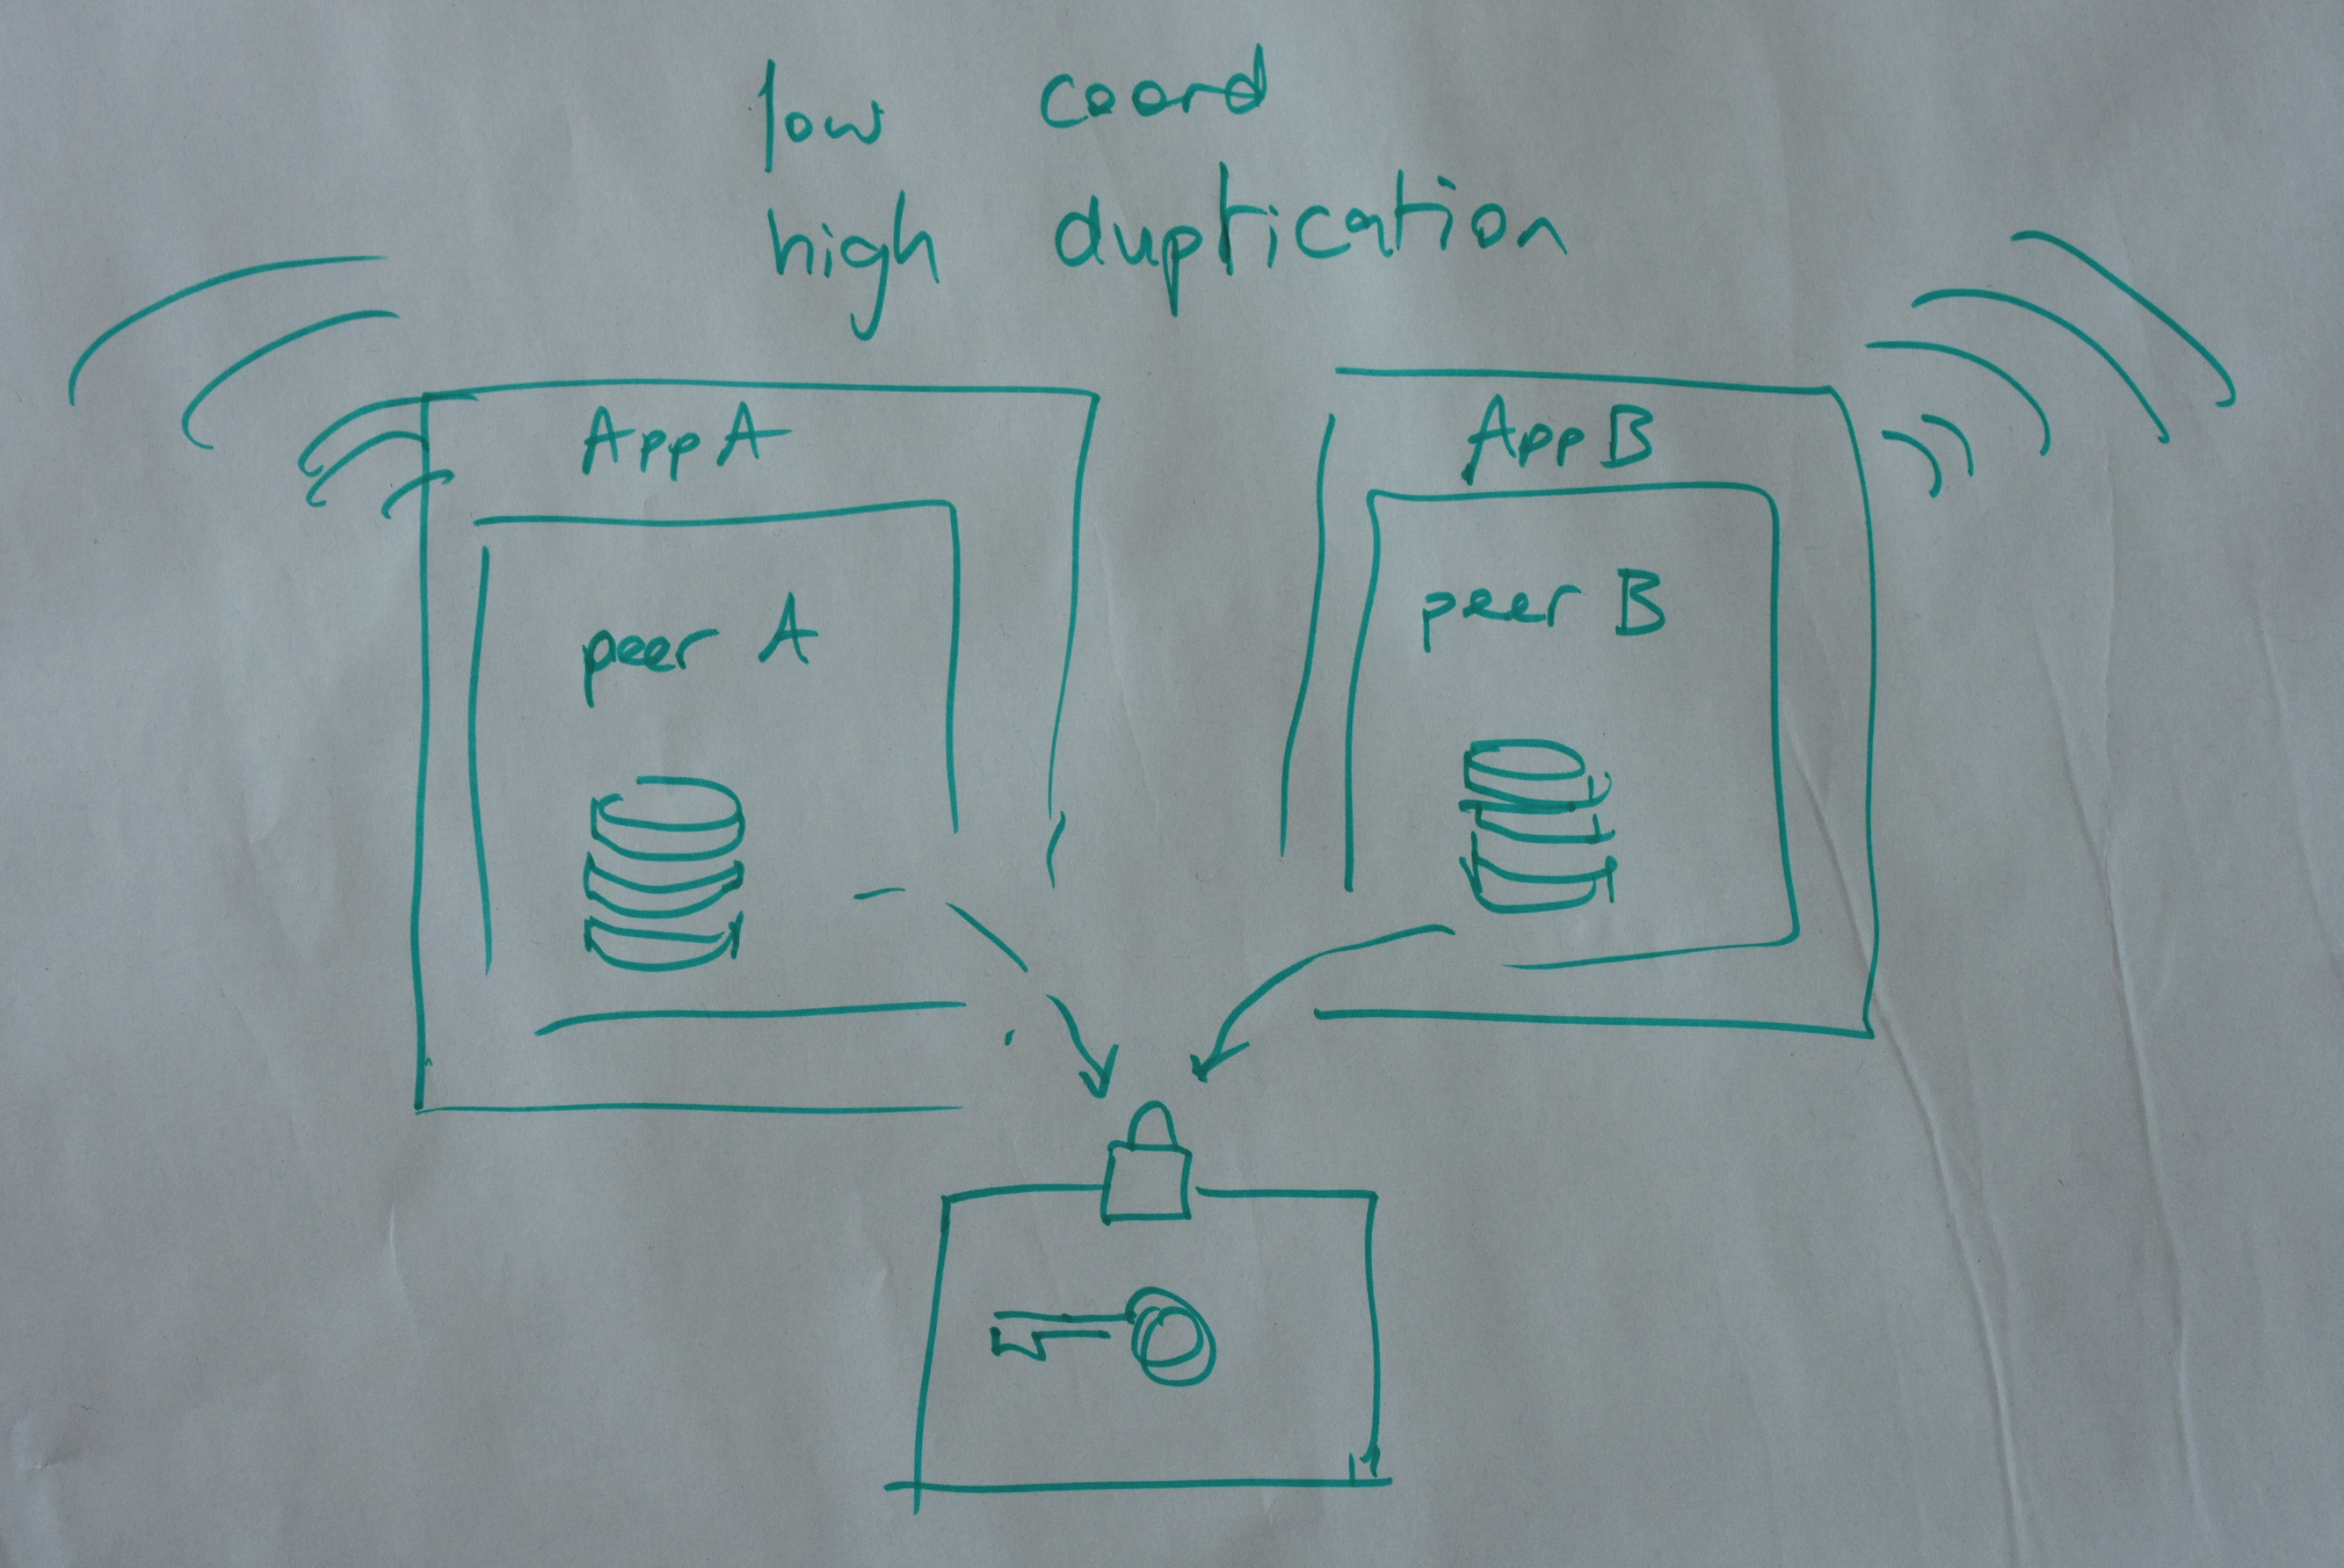 low coord
high duplication
App A
App B
peer A
peer B